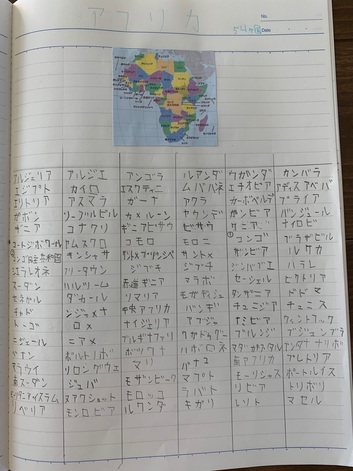 アフリカ
No.
Date
アルジェリア アルジェ アンゴラ ルアンダ ウガンダ カンパラ
エジプト カイロ エスワティニ ムババネ エチオピア アディスアベバ
エリトリア アスマラ ガーナ アクラ カーボベルデ プライア
ガボン リーブルビル カメルーン ヤウンデ ガンビア バンジュール
ギニア コナクリ ギニアビサウ ビサウ ケニア ナイロビ
コートジボワール ヤムスクロ コモロ モロニ コンゴ ブラザビル
コンゴ民主共和国 キンシャサ サントメプリンシペ サントメ ザンビア ルサカ
シエラレオネ フリータウン ジブチ ジブチ ジンバブエ ハラレ
スーダン ハルツーム 赤道ギニア マラボ セーシェル ビクトリア
セネガル ダカール ソマリア モガディシュ タンザニア ドドマ
チャド ンジャメナ 中央アフリカ バンギ チュニジア チュニス
トーゴ ロメ ナイジェリア アブジャ ナミビア ウィントフック
ニジェール ニアメ ブルキナファソ ワガドゥグー ブルンジ ブジュンブラ
ベナン ポルトノボ ボツワナ ハボロネ マダガスカル アンタナナリボ
マラウイ リロングウェ マリ バマコ 南アフリカ プレトリア
南スーダン ジュバ モザンビーク マプト モーリシャス ポートルイス
モーリタニアイスラム ヌアクショット モロッコ ラバト リビア トリポリ
リベリア モンロビア ルワンダ キガリ レソト マセル